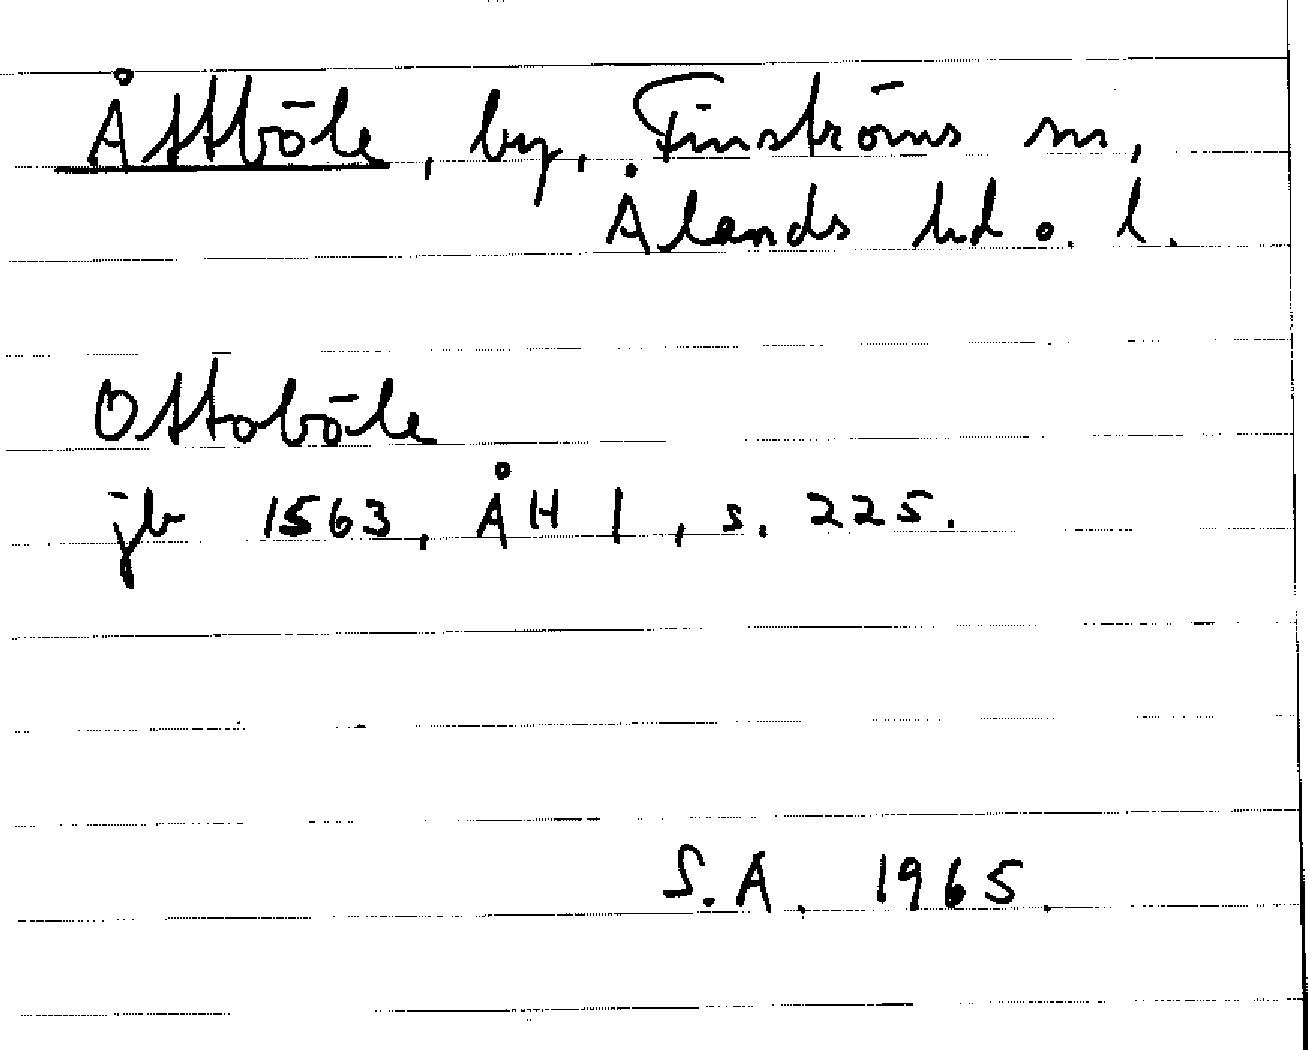 Åttböle, by, Finströms sn,
Ålands hd o. l.
Ottoböle
jb 1563, ÅH I, s. 225.
S.A. 1965.